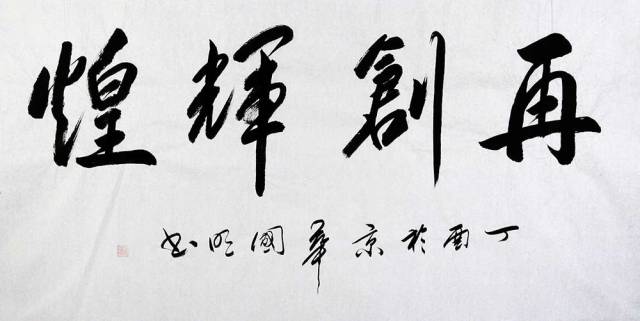 再創輝煌
丁酉於京華國明书